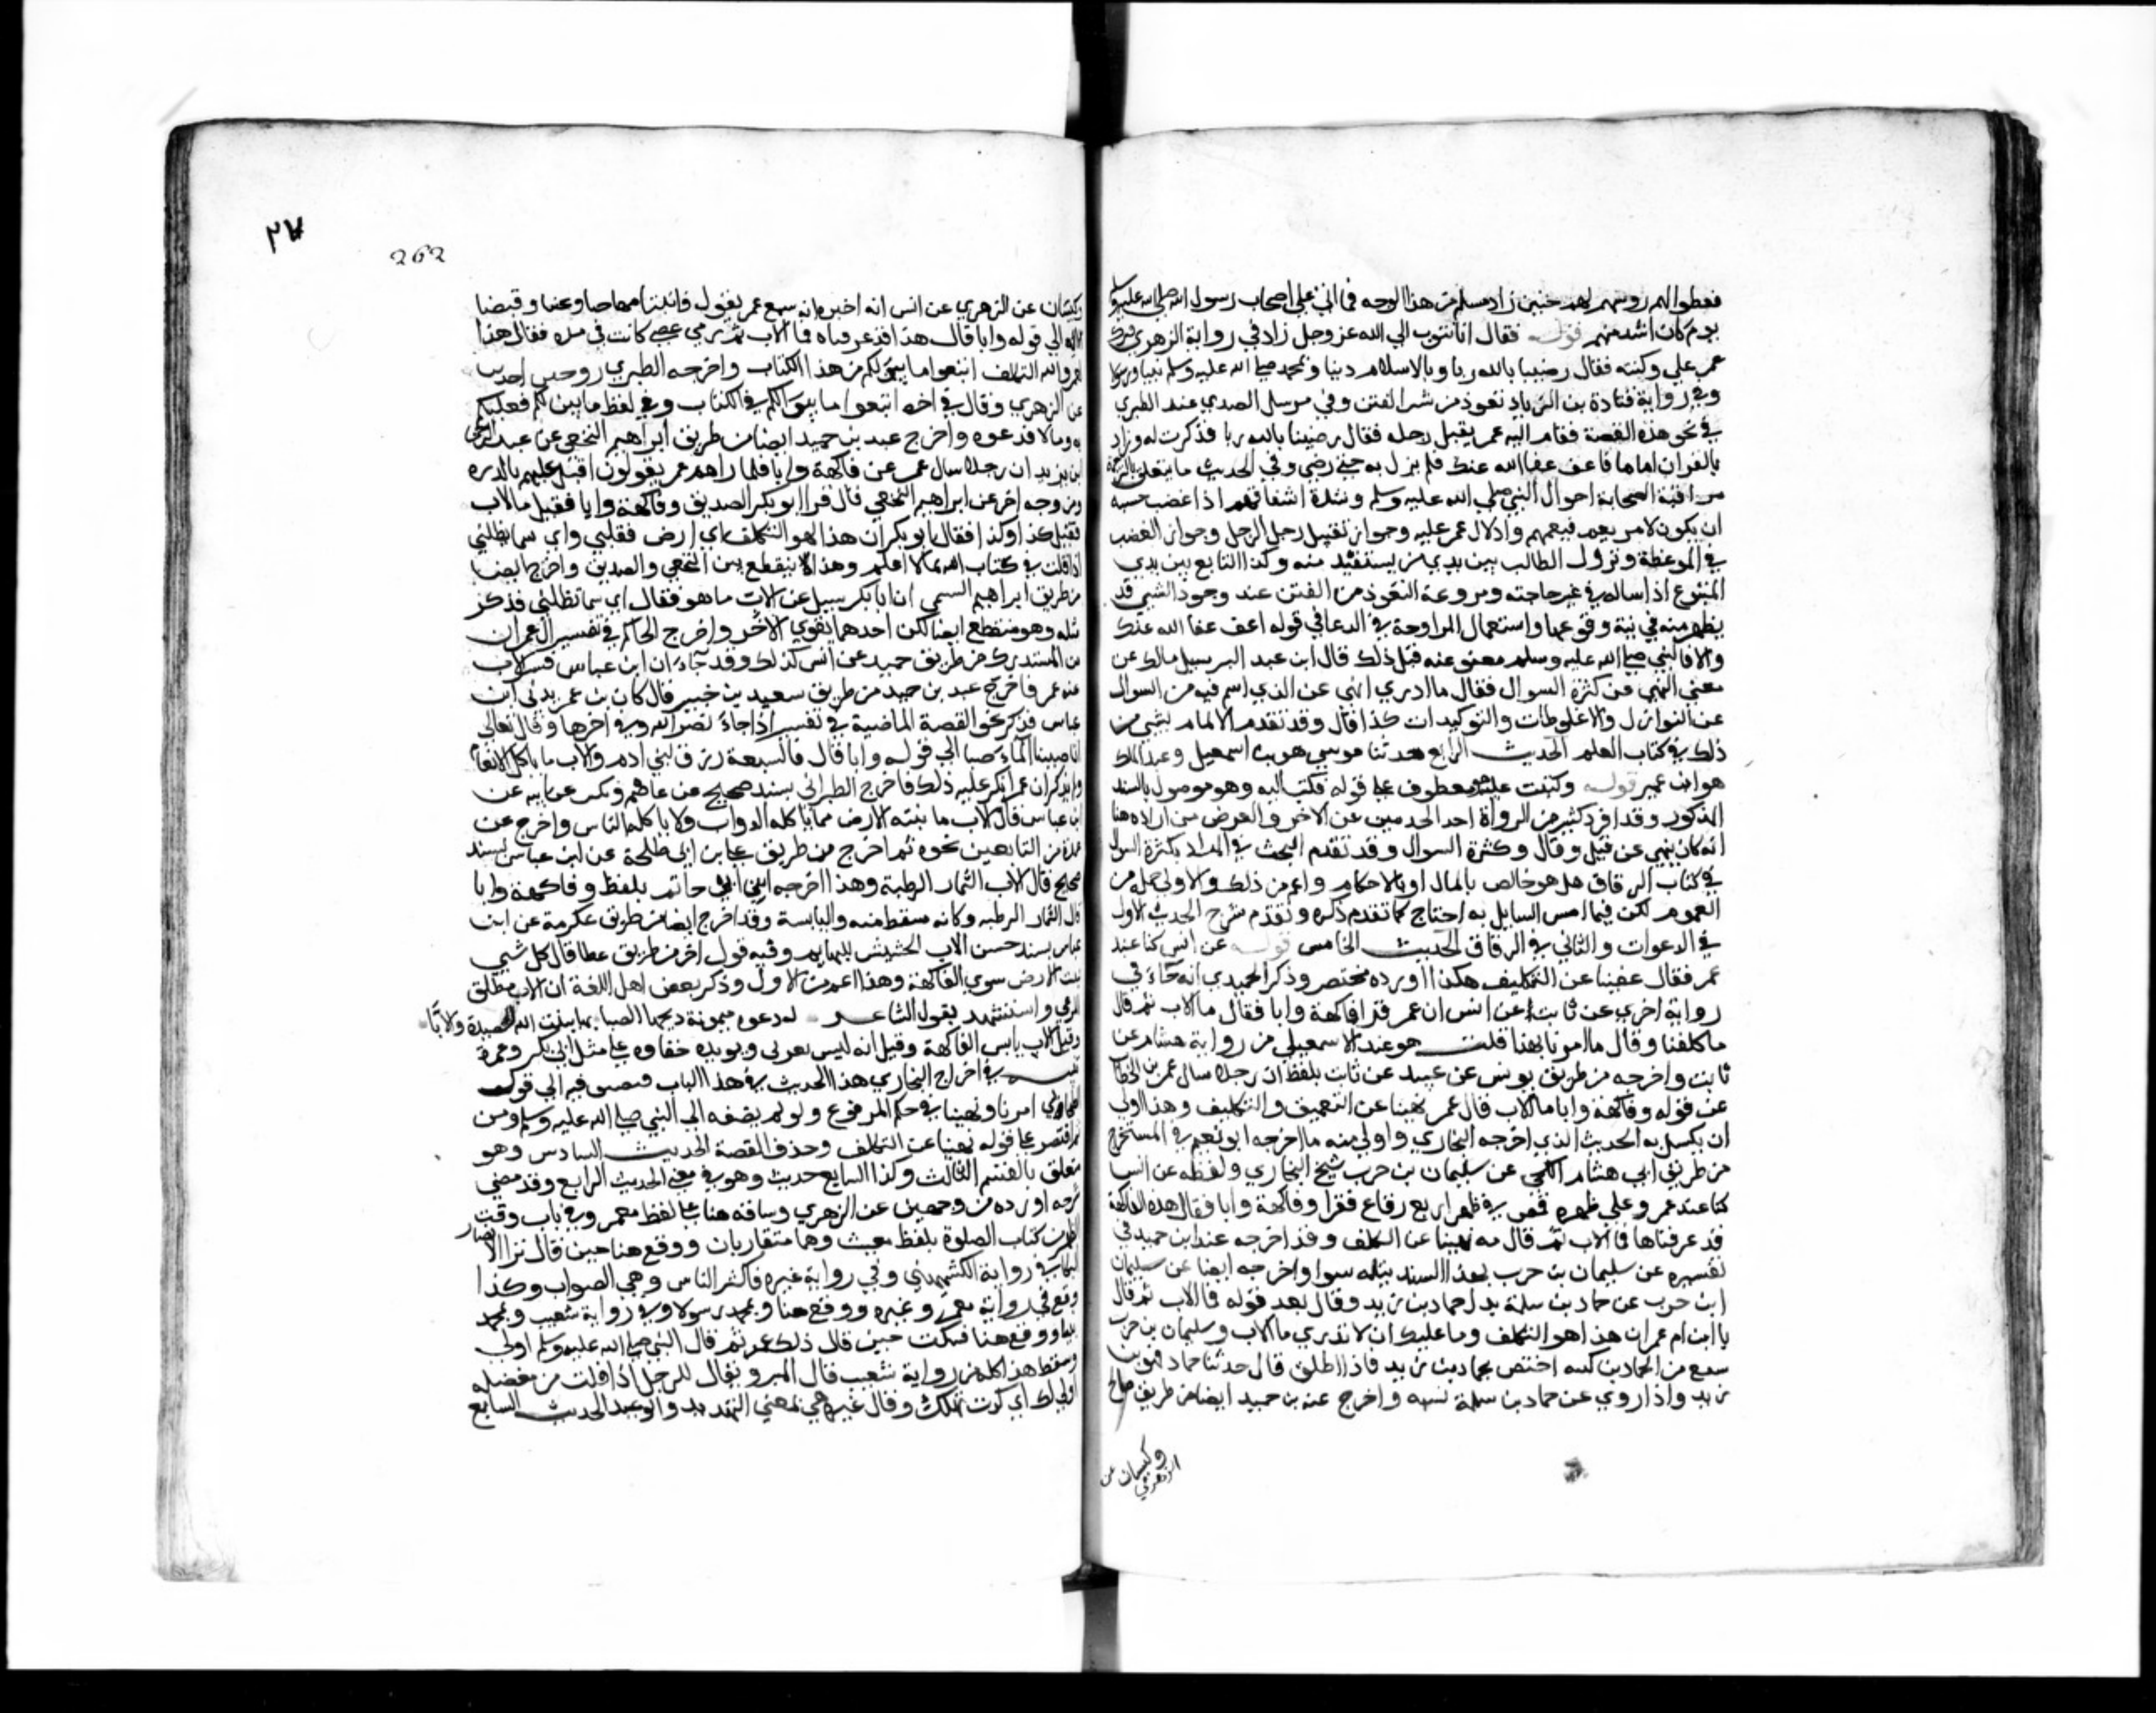 فغطوا رؤسهم لهم حنين زاد مسلم من هذا الوجه فما اتى على اصحاب رسول الله صلى الله عليه وسلم
يوم كان اشد منه قوله فقال انا نتوب الي الله عز وجل زاد في رواية الزهري فبرك
عمر علي ركبته فقال رضينا بالله ربا وبالاسلام دينا وبمحمد صلى الله عليه وسلم نبيا ورسولا
وفي رواية قتادة من الزياد نعوذ من شر الفتن وفي مرسل السدي عند الطبري
في نحو هذه القصة فقام اليه عمر يقبل رجله فقال رضينا بالله ربا فذكر مثله وزاد
بالقران اماما فاعف عفا الله عنك فلم يزل به حتى رضي وفي الحديث ما يتعلق بالترجمة
مراقبة الصحابة احوال النبي صلى الله عليه وسلم وشدة اشفاقهم اذا غضب خشية
ان يكون لامر يعم فيعمهم وادلال عمر عليه وجواز تقبيل رجل الرجل وجواز الغضب
في الموعظة وبروك الطالب بين يدي من يستفيد منه وكذا التابع بين يدي
المتبوع اذا ساله في غير حاجته ومشروعية التعوذ من الفتن عند وجود الشي قد
يظهر منه قرينة وقوعها واستعمال المزاوجة في الدعا في قوله اعف عفا الله عنك
والا فالنبي صلى الله عليه وسلم معفو عنه قبل ذلك قال ابن عبد البر سيل مالك عن
معنى النهي عن كثرة السوال فقال ما ادري انهي عن الذي انتم فيه من السوال
عن النوازل والاغلوطات والتوليدات كذا قال وقد تقدم الالمام بشي من
ذلك في كتاب العلم الحديث الرابع حدثنا موسى هو بن اسمعيل وعبد الملك
هو ابن عمير قوله وكتب اليه معطوف على قوله فكتب اليه وهو موصول بالسند
المذكور وقد افرد كثير من الرواة احد الحديثين عن الاخر والغرض من ايراده هنا
انه كان ينهى عن قيل وقال وكثرة السوال وقد تقدم البحث في المراد بكثرة السوال
في كتاب الرقاق هل هو خاص بالمال او بالاحكام او اعم من ذلك والاولى حمله على
العموم لكن فيما ليس للسايل به احتياج كما تقدم ذكره وتقدم شرح الحديث الاول
في الدعوات والثاني في الرقاق الحديث الخامس قوله عن انس كنا عند
عمر فقال نهينا عن التكليف هكذا اورده مختصر وذكر الحميدي انه جاء في
رواية اخرى عن ثابت عن انس ان عمر قرا فاكهة وابا فقال ما الاب ثم قال
ما كلفنا او قال ما امرنا بهذا قلت هو عند الاسمعيلي من رواية هشام عن
ثابت واخرجه من طريق يونس بن عبيد عن ثابت بلفظ ان رجلا سال عمر بن الخطاب
عن قوله وفاكهة وابا ما الاب فقال عمر نهينا عن التعمق والتكليف وهذا اولى
ان يكمل به الحديث الذي اخرجه البخاري واولى منه ما اخرجه ابو نعيم في المستخرج
من طريق ابي مسلم الكجي عن سليمان بن حرب شيخ البخاري ولفظه عن انس
كنا عند عمر وعليه قميص في ظهره اربع رقاع فقرا وفاكهة وابا فقال هذه الفاكهة
قد عرفناها فما الاب ثم قال مه نهينا عن التكلف وقد اخرجه عبد بن حميد في
تفسيره عن سليمان بن حرب بهذا السند مثله سوا واخرجه ايضا عن سليمان
ابن حرب عن حماد بن سلمة بدل حماد بن زيد وقال بعد قوله فما الاب ثم قال
يا ابن ام عمر ان هذا لهو التكلف وما عليك ان لا تدري ما الاب وسليمان بن حرب
سمع من الحمادين لكنه اختص بحماد بن زيد فاذا اطلق قال حدثنا حماد فهو بن
زيد واذا روى عن حماد بن سلمة نسبه واخرج عبد بن حميد ايضا من طريق صالح
وكيسان عن الزهري
٢٧
262
وكيسان عن الزهري عن انس انه اخبره انه سمع عمر يقول فانبتنا فيها حبا وعنبا وقضبا
الاية الى قوله وابا قال هذا قد عرفناه فما الاب ثم رمى عصى كانت في يده فقال هذا
لعمر الله التكلف اتبعوا ما بين لكم من هذا الكتاب واخرجه الطبري من وجهين اخرين
عن الزهري وقال في اخره اتبعوا ما بين لكم في الكتاب وفي لفظ ما بين لكم فعليكم
به وما لا فدعوه واخرج عبد بن حميد ايضا من طريق ابراهيم النخعي عن عبد الرحمن
ابن يزيد ان رجلا سال عمر عن فاكهة وابا فلما راهم عمر يقولون اقبل عليهم بالدره
ومن وجه اخر عن ابراهيم النخعي قال قرا ابو بكر الصديق وفاكهة وابا فقيل ما الاب
فقيل كذا وكذا فقال ابو بكر ان هذا لهو التكلف اي ارض تقلني واي سما تظلني
اذا قلت في كتاب الله بما لا اعلم وهذا منقطع بين النخعي والصديق واخرج ايضا
من طريق ابراهيم التيمي ان ابا بكر سيل عن الاب ما هو فقال اي سما تظلني فذكر
مثله وهو منقطع ايضا لكن احدهما يقوي الاخر واخرج الحاكم في تفسير ال عمران
من المستدرك من طريق حميد عن انس كذلك وقد جاء ان ابن عباس فسر الاب
عند عمر فاخرج عبد بن حميد من طريق سعيد بن جبير قال كان بن عمر يدني ابن
عباس فذكر نحو القصة الماضية في تفسير اذا جاء نصر الله وفي اخرها وقال تعالى
انا صببنا الماء صبا الى قوله وابا قال فالسبعة رزق لبني ادم والاب ما تاكل الانعام
ولم يذكر ان عمر انكر عليه ذلك فاخرج الطبراني بسند صحيح عن عاصم بن كليب عن ابيه عن
ابن عباس قال الاب ما تنبته الارض مما تاكله الدواب ولا ياكله الناس واخرج عن
عدة من التابعين نحوه ثم اخرج من طريق علي بن ابي طلحة عن ابن عباس بسند
صحيح قال الاب الثمار الرطبة وهذا اخرجه ابن ابي حاتم بلفظ وفاكهة وابا
قال الثمار الرطبة وكانه سقط منه واليابسة وقد اخرج ايضا من طريق عكرمة عن ابن
عباس بسند حسن الاب الحشيش للبهايم وفيه قول اخر من طريق عطا قال كل شي
ينبت الارض سوى الفاكهة وهذا اعم من الاول وذكر بعض اهل اللغة ان الاب مطلق
المرعى واستشهد بقول الشاعر له دعوة ميمونة ريحها الصبا بها ينبت الله الحصيدة والابا
وقيل الاب يابس الفاكهة وقيل انه ليس بعربي ويويده خفاوه على مثل ابي بكر وعمر
تنبيه في اخراج البخاري هذا الحديث في هذا الباب مصير منه الى قول
الصحابي امرنا ونهينا في حكم المرفوع ولو لم يضفه الى النبي صلى الله عليه وسلم ومن
ثم اقتصر على قوله نهينا عن التكلف وحذف القصة الحديث السادس وهو
متعلق بالقسم الثالث وكذا السابع حديث وهو في معنى الحديث الرابع وقد مضى
شرحه اورده من وجهين عن الزهري وساقه هنا على لفظ معمر وفي باب وقت
الظهر من كتاب الصلوة بلفظ شعيب وهما متقاربان ووقع هنا حين قال نزا الانصار
البكاء في رواية الكشميهني وفي رواية غيره فاكثر الناس وهي الصواب وكذا
وقع في رواية معمر وغيره ووقع هنا وبمحمد رسولا وفي رواية شعيب وبمحمد
نبيا ووقع هنا فسكت حين قال ذلك عمر ثم قال النبي صلى الله عليه وسلم اولى
وسقط هذا كله من رواية شعيب قال المبرد يقال للرجل اذا افلت من معضلة
اولى لك اي كدت تهلك وقال غيره هي بمعنى التهديد والوعيد الحديث السابع